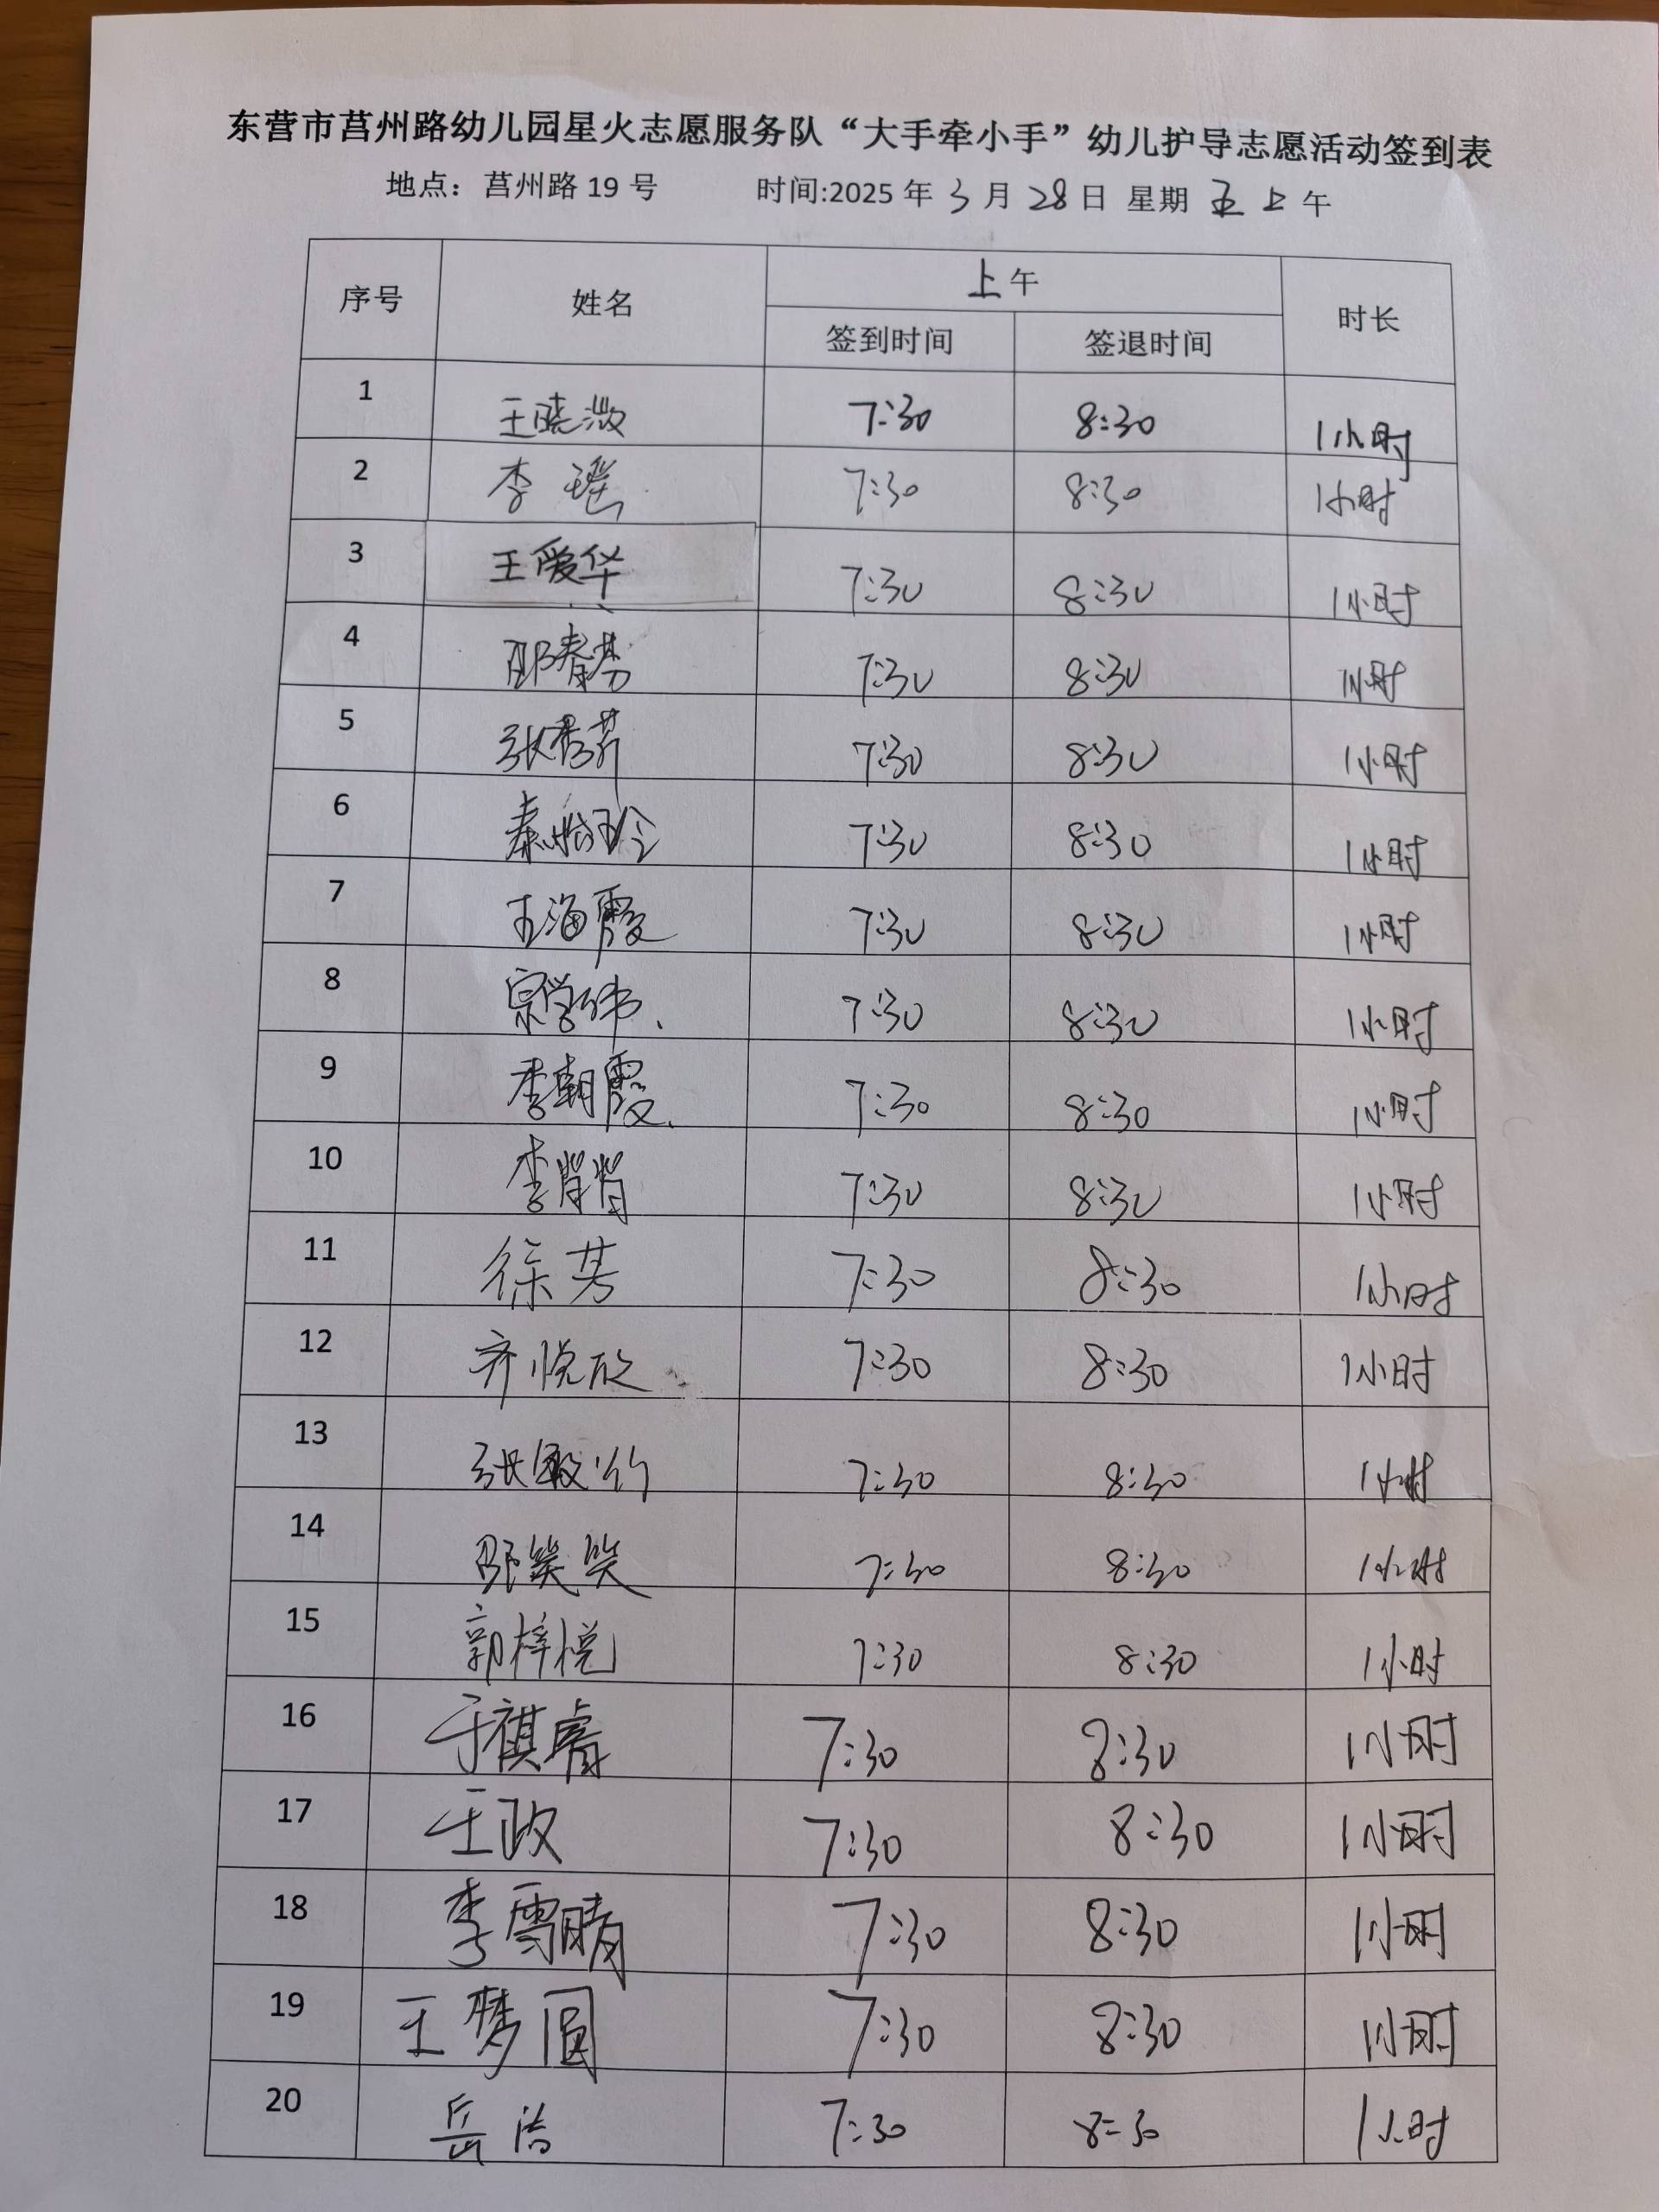 东营市莒州路幼儿园星火志愿服务队“大手牵小手”幼儿护导志愿活动签到表
地点：莒州路 19 号 时间:2025 年 3 月 28 日 星期 五 上 午
序号 姓名 上午 时长
签到时间 签退时间
1 王晓溦 7:30 8:30 1小时
2 李瑶 7:30 8:30 1小时
3 王爱华 7:30 8:30 1小时
4 邵春芬 7:30 8:30 1小时
5 张秀芹 7:30 8:30 1小时
6 秦 玲 7:30 8:30 1小时
7 王海霞 7:30 8:30 1小时
8 宗学伟 7:30 8:30 1小时
9 李朝霞 7:30 8:30 1小时
10 李肖肖 7:30 8:30 1小时
11 徐芳 7:30 8:30 1小时
12 齐悦欣 7:30 8:30 1小时
13 张敏 7:30 8:30 1小时
14 笑笑 7:30 8:30 1小时
15 郭梓悦 7:30 8:30 1小时
16 于祺睿 7:30 8:30 1小时
17 王政 7:30 8:30 1小时
18 李雪晴 7:30 8:30 1小时
19 王梦圆 7:30 8:30 1小时
20 岳洁 7:30 8:30 1小时